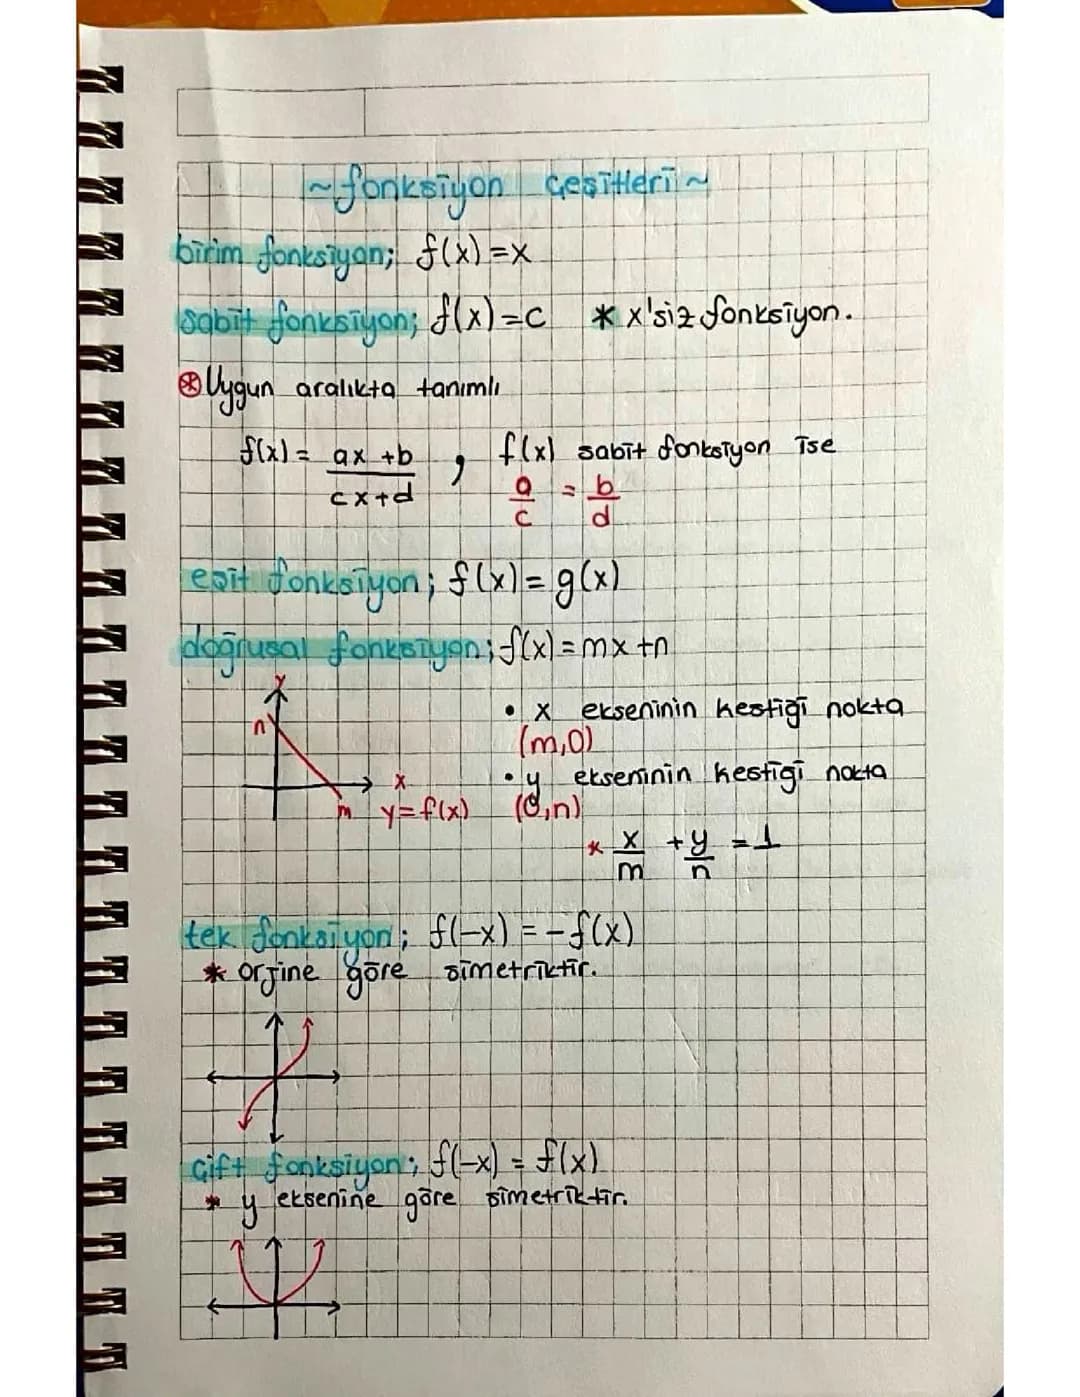 ~fonksiyon çeşitleri~
birim fonksiyon; f(x)=x
sabit fonksiyon; f(x)=c * x'siz fonksiyon.
⊛ Uygun aralıkta tanımlı
f(x) = ax+b / cx+d , f(x) sabit fonksiyon ise
a/c = b/d
eşit fonksiyon; f(x)=g(x)
doğrusal fonksiyon; f(x)=mx+n
y
n
x
m
y=f(x)
• x ekseninin kestiği nokta
(m,0)
• y ekseninin kestiği nokta
(0,n)
* x/m + y/n = 1
tek fonksiyon; f(-x) = -f(x)
* orjine göre simetriktir.
çift fonksiyon; f(-x) = f(x)
* y eksenine göre simetriktir.